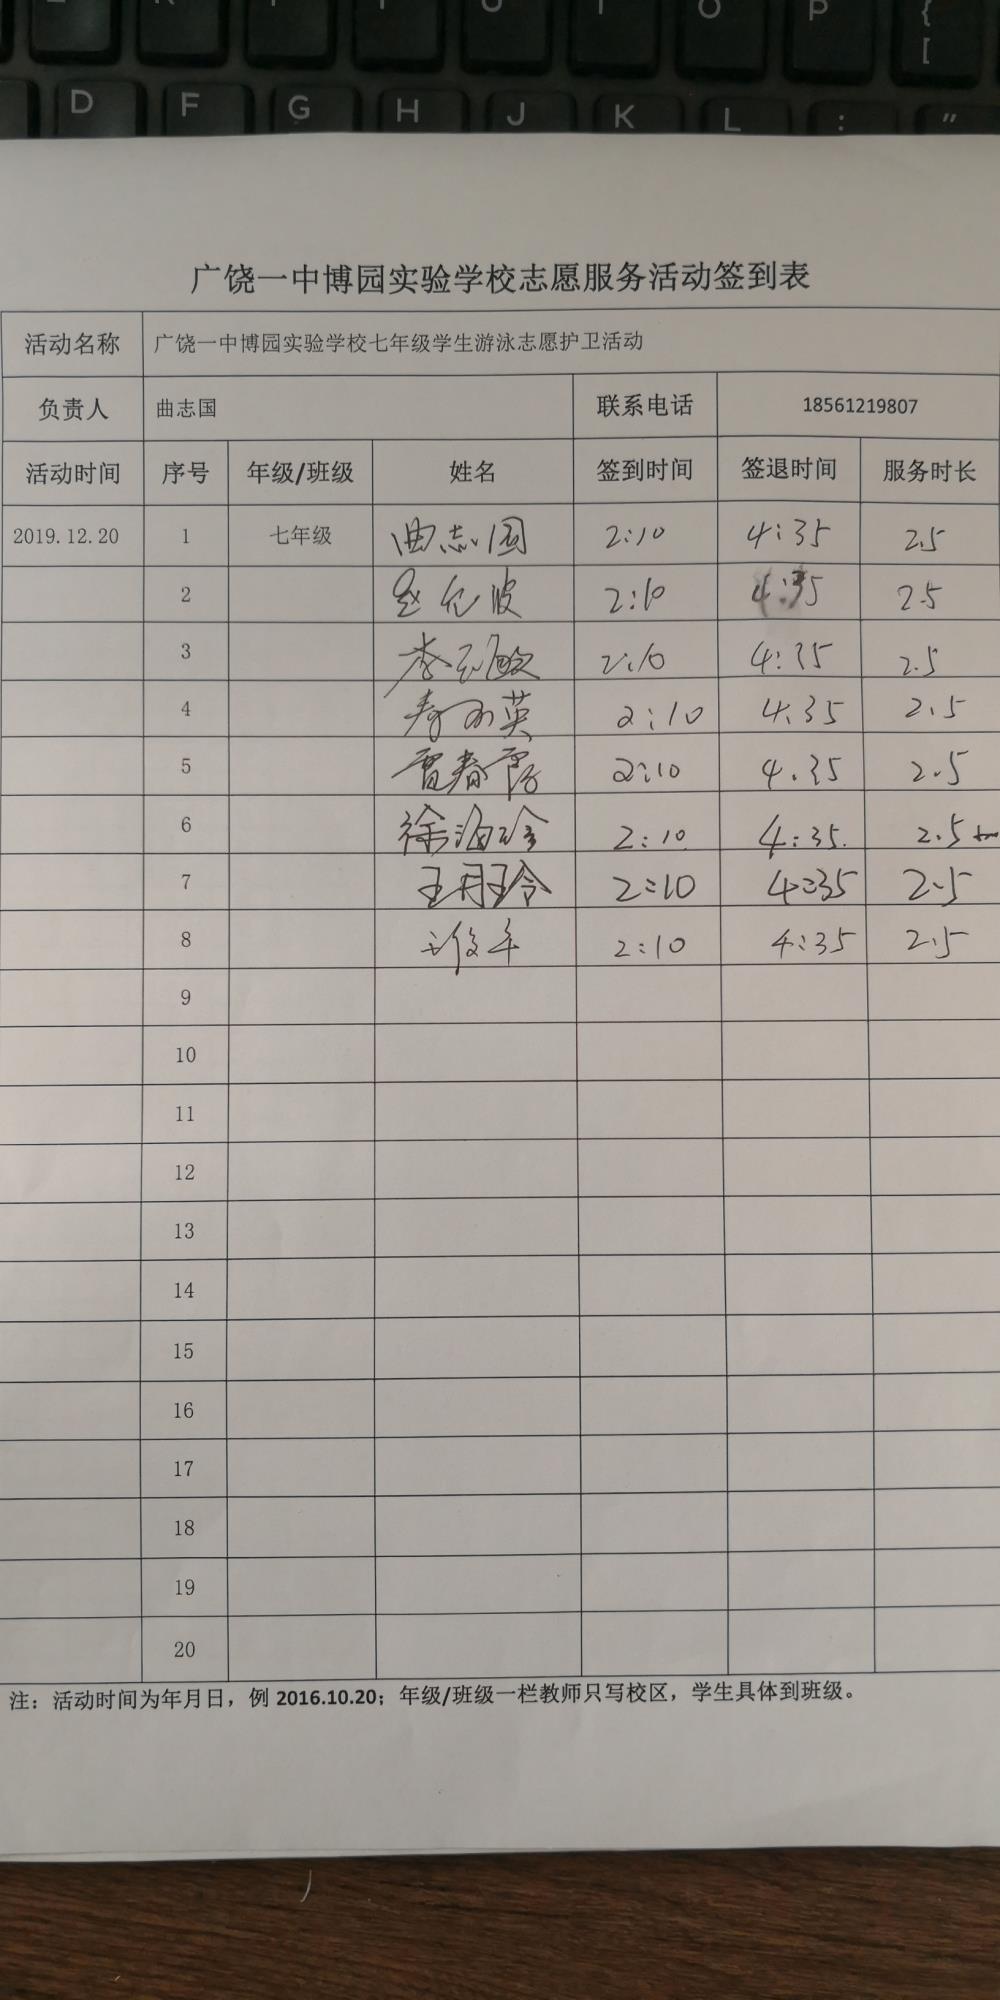 D F G H J K L : "
O P { [
广饶一中博园实验学校志愿服务活动签到表
活动名称 广饶一中博园实验学校七年级学生游泳志愿护卫活动
负责人 曲志国 联系电话 18561219807
活动时间 序号 年级/班级 姓名 签到时间 签退时间 服务时长
2019.12.20 1 七年级 曲志国 2:10 4:35 2.5
2 2:10 4:35 2.5
3 2:10 4:35 2.5
4 2:10 4.35 2.5
5 2:10 4.35 2.5
6 徐海玲 2:10 4:35. 2.5
7 王月玲 2:10 4:35 2.5
8 2:10 4:35 2.5
9
10
11
12
13
14
15
16
17
18
19
20
注：活动时间为年月日，例 2016.10.20；年级/班级一栏教师只写校区，学生具体到班级。